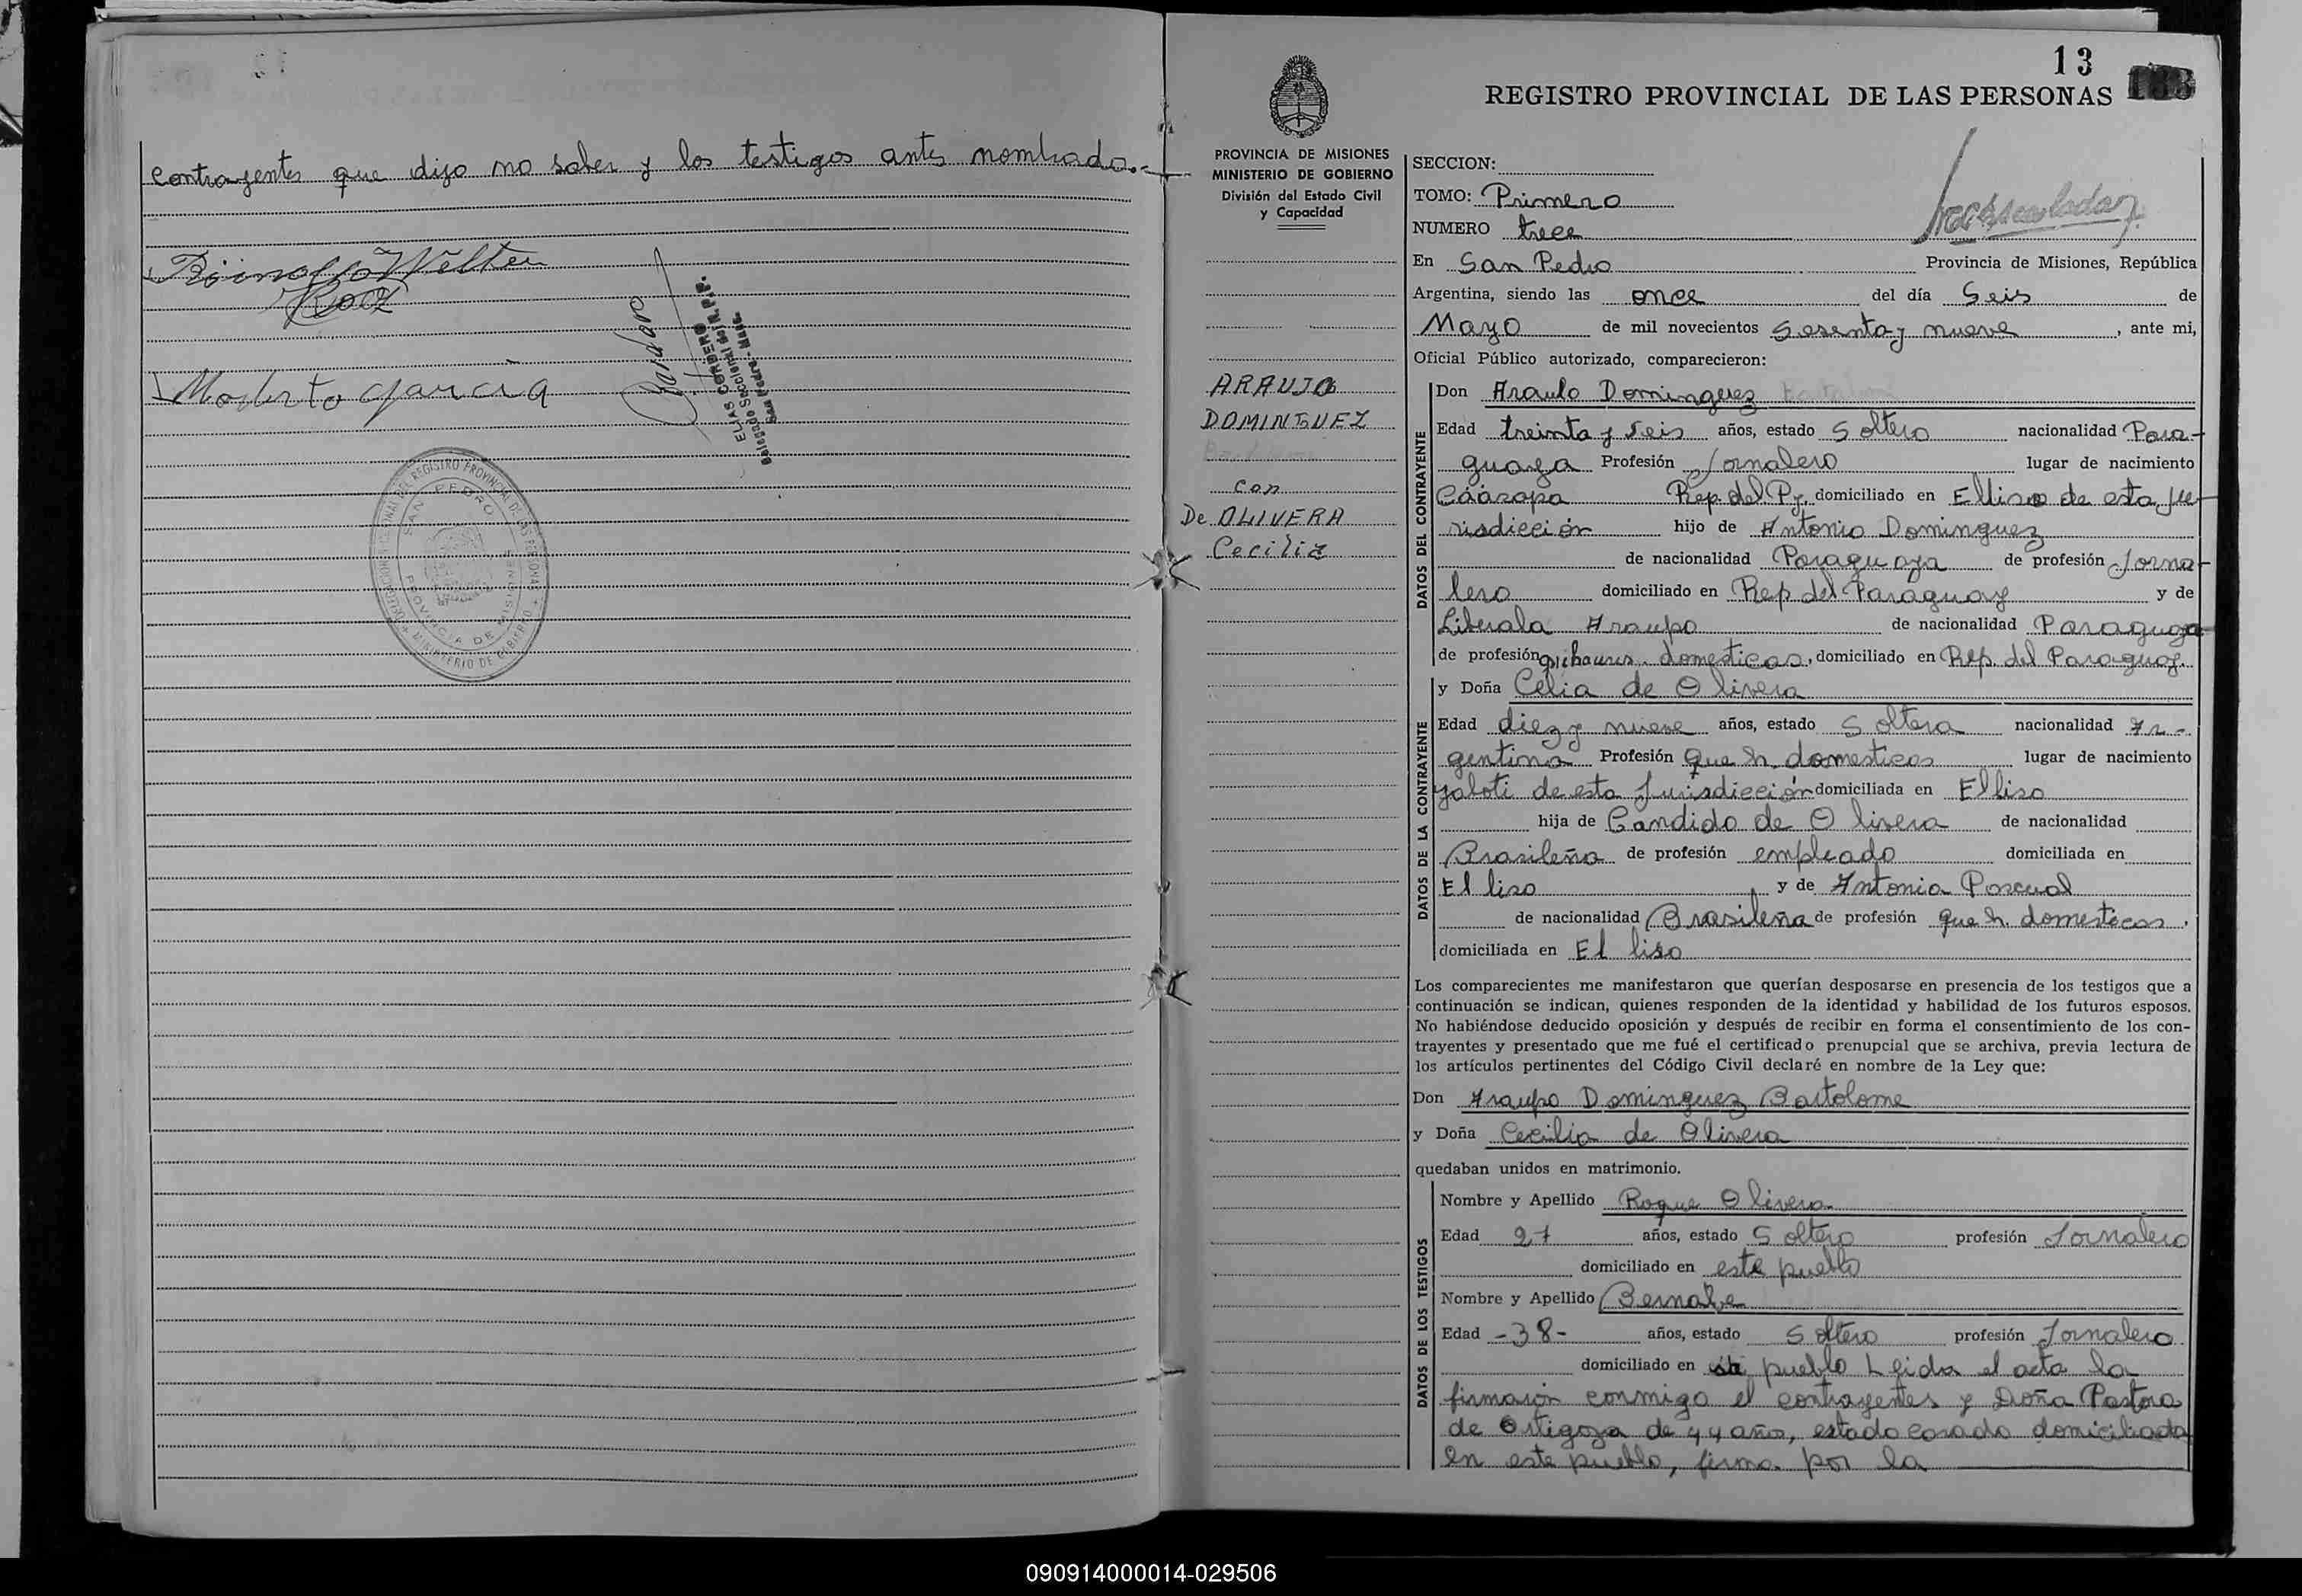 contrayentes que dijo no saber y los testigos antes nombrado.-
Modesto Garcia
ELIAS CORBERO
Delegado Seccional del R.P.P.
San Pedro - Mnes.
DELEGACION SECCIONAL DEL REGISTRO PROVINCIAL DE LAS PERSONAS
MINISTERIO DE GOBIERNO
SAN PEDRO
PROVINCIA DE MISIONES
13
REGISTRO PROVINCIAL DE LAS PERSONAS
PROVINCIA DE MISIONES
MINISTERIO DE GOBIERNO
División del Estado Civil
y Capacidad
ARAUJO
DOMINGUEZ
con
De OLIVERA
Cecilia
SECCION:
TOMO: Primero
NUMERO trece
En San Pedro Provincia de Misiones, República
Argentina, siendo las once del día Seis de
Mayo de mil novecientos Sesenta y nueve, ante mi,
Oficial Público autorizado, comparecieron:
DATOS DEL CONTRAYENTE
Don Araulo Dominguez
Edad treinta y seis años, estado Soltero nacionalidad Para-
guaya Profesión Jornalero lugar de nacimiento
Caazapa Rep. del Py. domiciliado en El liso de esta ju-
risdicción hijo de Antonio Dominguez
de nacionalidad Paraguaya de profesión Jorna-
lero domiciliado en Rep del Paraguay y de
Liberala Araujo de nacionalidad Paraguaya
de profesión domesticos, domiciliado en Rep. del Paraguay.
DATOS DE LA CONTRAYENTE
y Doña Celia de Olivera
Edad diez y nueve años, estado Soltera nacionalidad Ar-
gentina Profesión que h. domesticos lugar de nacimiento
Yaboti de esta Jurisdicción domiciliada en El liso
hija de Candido de Olivera de nacionalidad
Brasileña de profesión empleado domiciliada en
El liso y de Antonia Pascual
de nacionalidad Brasileña de profesión que h. domesticos,
domiciliada en El liso
Los comparecientes me manifestaron que querían desposarse en presencia de los testigos que a
continuación se indican, quienes responden de la identidad y habilidad de los futuros esposos.
No habiéndose deducido oposición y después de recibir en forma el consentimiento de los con-
trayentes y presentado que me fué el certificado prenupcial que se archiva, previa lectura de
los artículos pertinentes del Código Civil declaré en nombre de la Ley que:
Don Araujo Dominguez Bartolome
y Doña Cecilia de Olivera
quedaban unidos en matrimonio.
DATOS DE LOS TESTIGOS
Nombre y Apellido Roque Olivera
Edad 27 años, estado Soltero profesión Jornalero
domiciliado en este pueblo
Nombre y Apellido Bernabe
Edad -38- años, estado Soltero profesión Jornalero
domiciliado en pueblo Leida el acta la
firmaron conmigo el contrayentes y Doña Pastora
de Ortigoza de 44 años, estado casada domiciliada
en este pueblo, firma por la
090914000014-029506